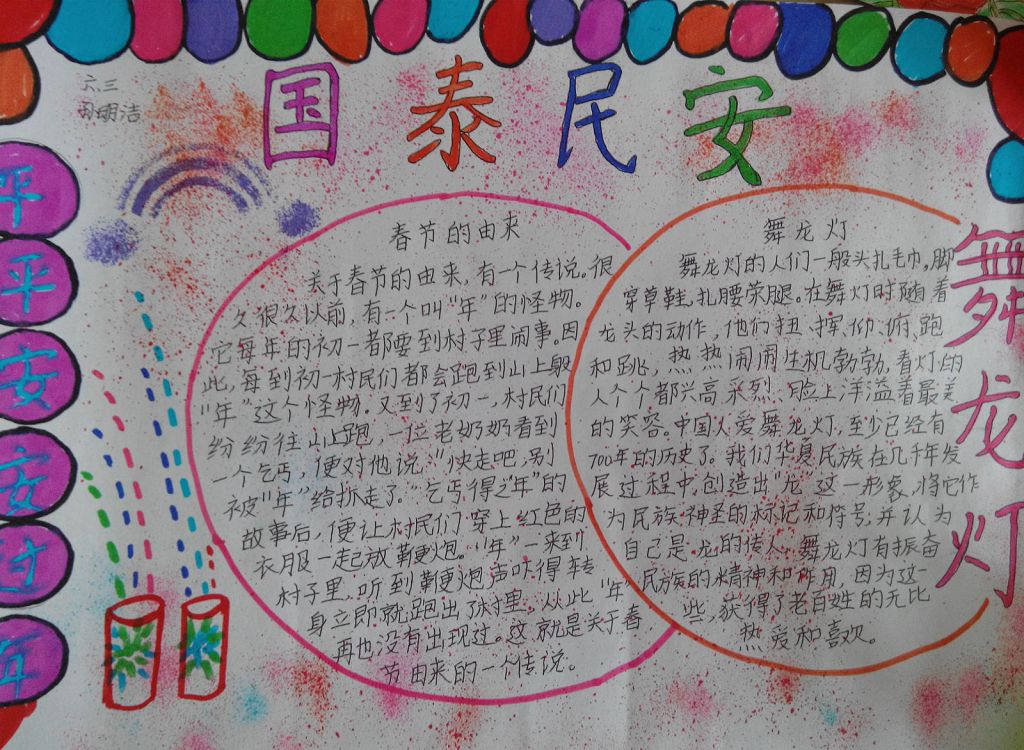 国泰民安
六.三
明洁
平
平
安
安
过
年
春节的由来
关于春节的由来,有一个传说。很
久很久以前,有一个叫“年”的怪物。
它每年的初一都要到村子里闹事。因
此,每到初一村民们都会跑到山上躲
“年”这个怪物。又到了初一,村民们
纷纷往山上跑,一位老奶奶看到
一个乞丐,便对他说“快走吧,别
被“年”给抓走了。”乞丐得之“年”的
故事后,便让村民们穿上红色的
衣服一起放鞭炮。“年”一来到
村子里,听到鞭炮声吓得转
身立即就跑出了村里。从此“年”
再也没有出现过。这就是关于春
节由来的一个传说。
舞龙灯
舞龙灯的人们一般头扎毛巾,脚
穿草鞋,扎腰束腿。在舞灯时随着
龙头的动作,他们扭、挥、仰、俯、跑
和跳,热热闹闹生机勃勃,看灯的
人个个都兴高采烈、脸上洋溢着最美
的笑容。中国人爱舞龙灯,至少已经有
700年的历史了。我们华夏民族在几千年发
展过程中,创造出“龙”这一形象,将它作
为民族神圣的标记和符号,并认为
自己是龙的传人。舞龙灯有振奋
民族的精神和作用,因为这一
些,获得了老百姓的无比
热爱和喜欢。
舞龙灯